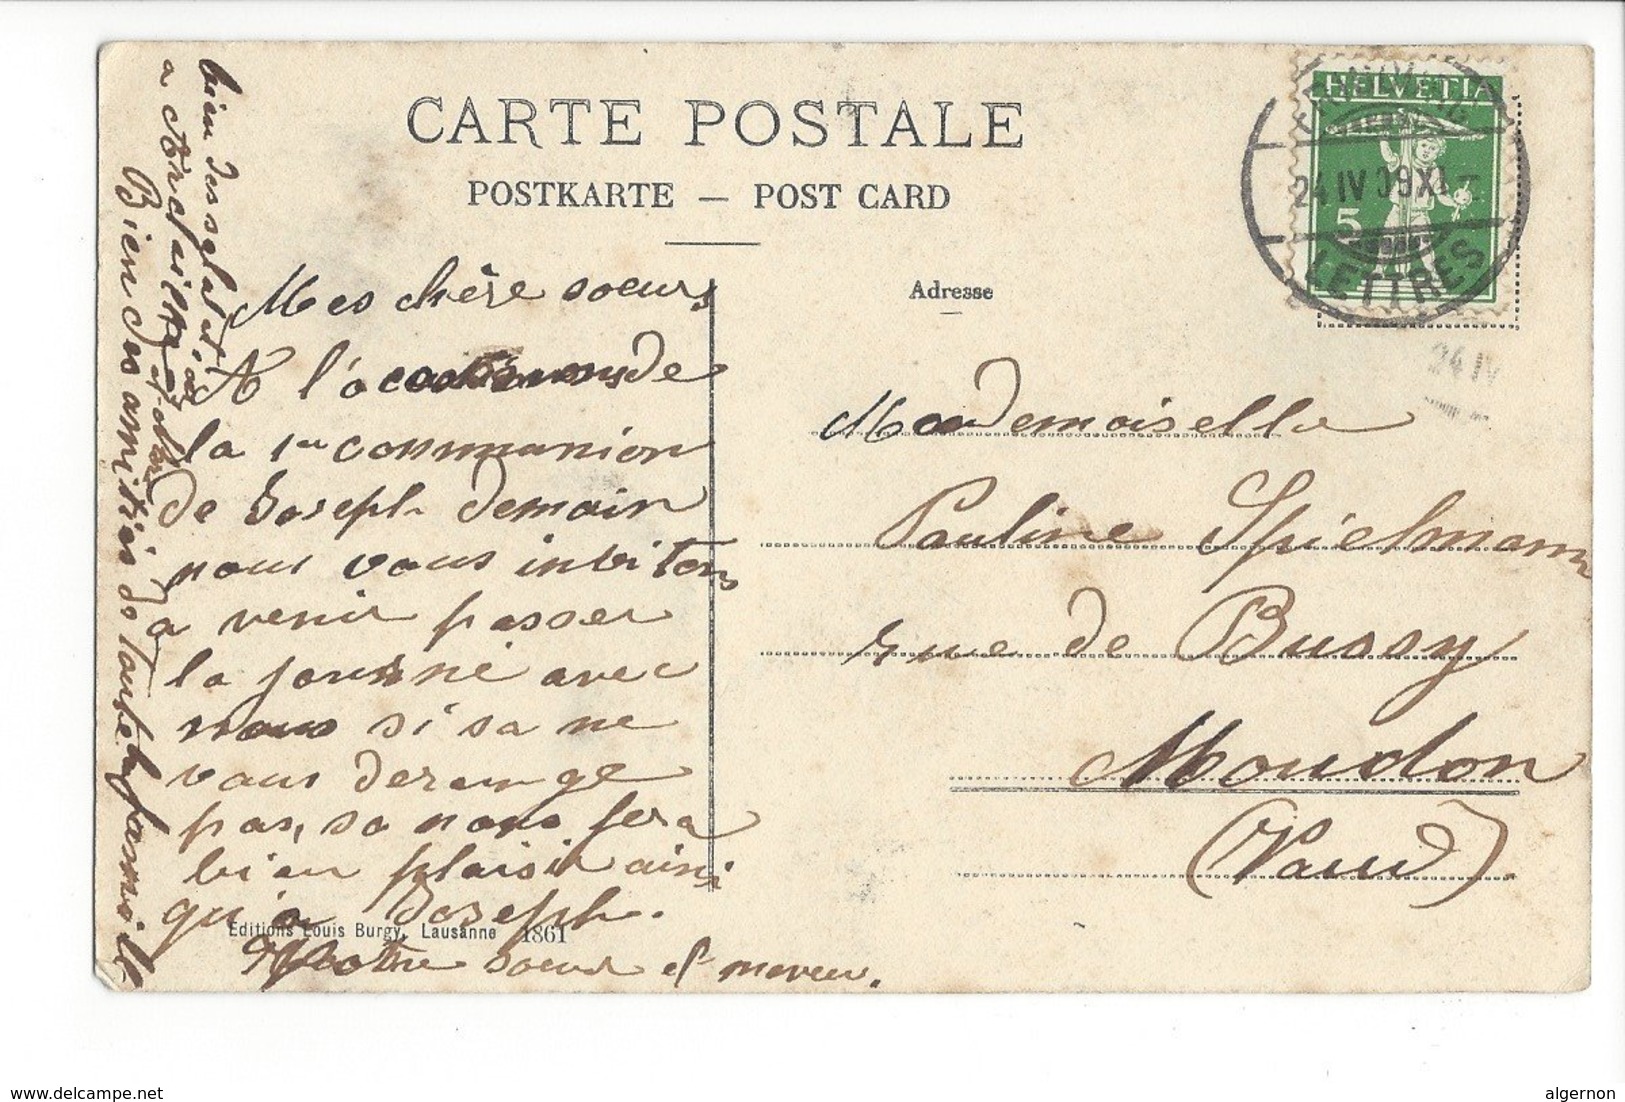 CARTE POSTALE
POSTKARTE — POST CARD
HELVETIA
5
24 IV 09 XI
LETTRES
24 IV
Adresse
Mes chère soeurs
A l'occasions de
la 1re communion
de Joseph demain
nous vous invitons
a venir passer
la journé avec
nous si sa ne
vous derenge
pas, sa nous fera
bien plaisir ainsi
qu'a Joseph.
Votre soeur et neveu.
bien des salut
a
Bien des amitiés de toute la famille
Mademoiselle
Pauline Spielmann
rue de Bussy
Moudon
(Vaud).
Editions Louis Burgy, Lausanne 1861
algernon
www.delcampe.net